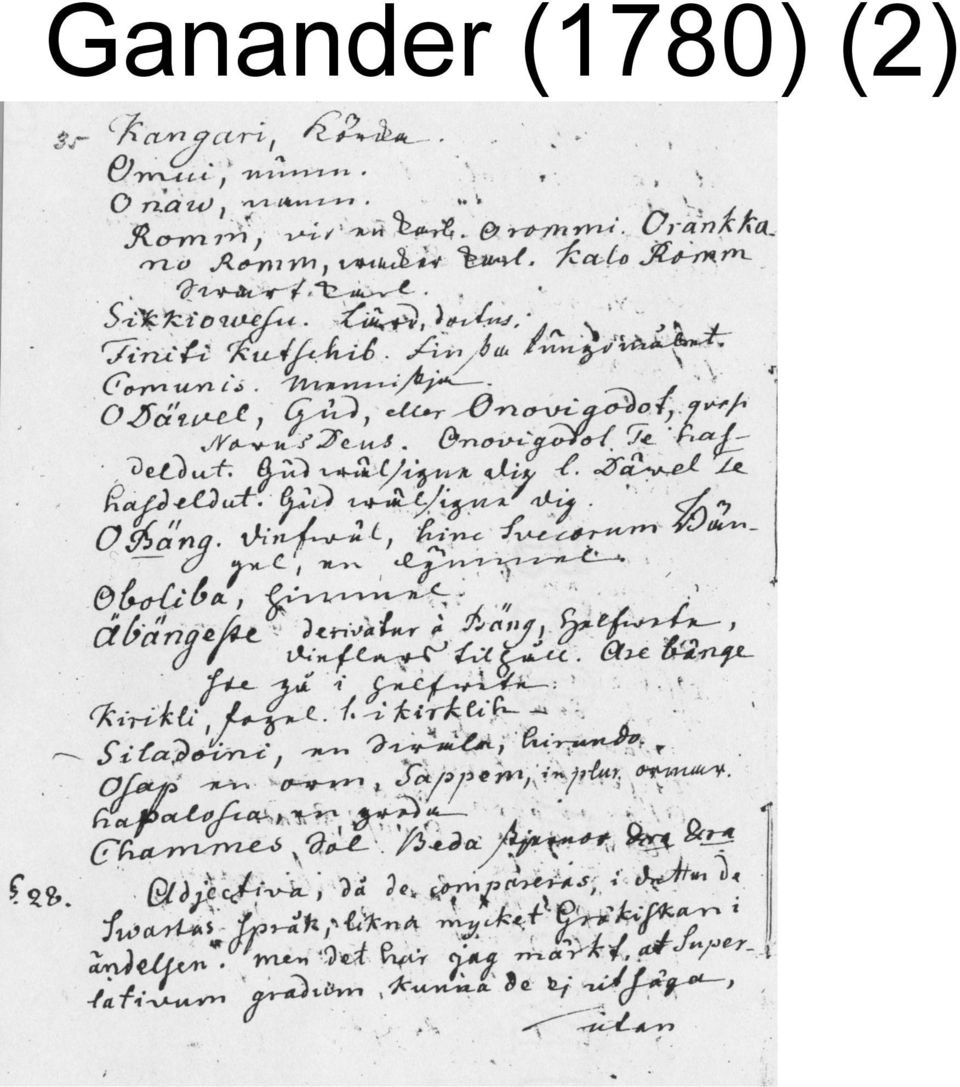 Ganander (1780) (2)
35 Kangari, Körka.
Omui, nümm.
Onaw, namn.
Romm, vir en karl. Orommi. Orankka-
no Romm, wacker karl. Kalo Romm
Swart karl.
Sikkiowesu. Lärd, doctus.
Finiti Kutschib. Finska tungomålet.
Comunis. Menniskja.
O Däwel, Gud, eller Onovigodot, quasi
Novus Deus. Onovigodol Te has-
deldut. Gud wälsigne dig l. Däwel te
hasdeldut. Gud wälsigne dig.
O Bäng. Diefwul, hinc Svecorum Bän-
gel, en lymmel.
Oboliba, Himmel.
Äbängeste derivatur à Bäng, Helfwete,
dieflars tilhåll. Are bänge
ste gå i Helfwete.
Kirikli, fogel. l. ikirklik –
Siladoini, en Swala, hirundo.
Osap en orm, Sappem, in plur. ormar.
hapalosia, en groda
Chammes Sol. Beda stjernor
§. 28. Adjectiva, då de compareras, i dettas De
Swartas språk, likna mycket Grekiskan i
ändelsen. men det har jag märkt, at Super-
lativum gradum kunna de ej utsäga,
utan